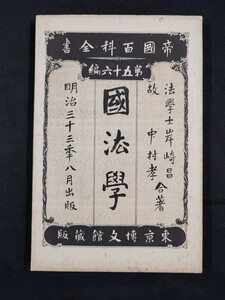 帝國百科全書
第五十六編
法學士岸崎昌
故中村孝
合著
國法學
明治三十三年八月出版
東京博文館藏版